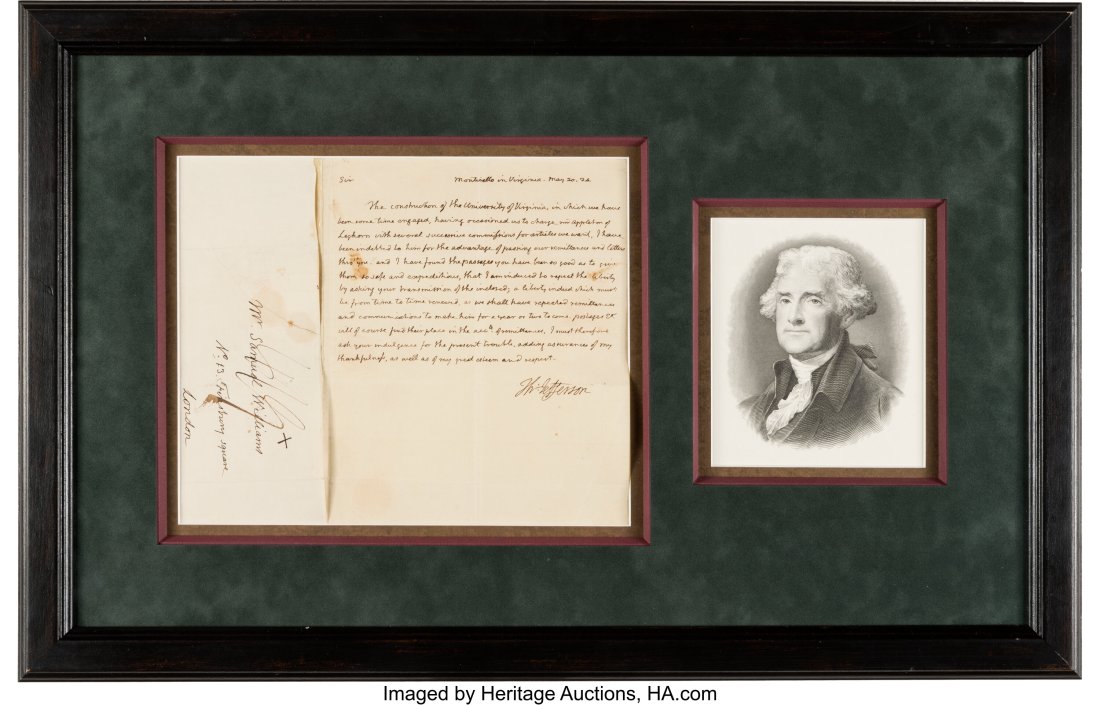 Sir
Monticello in Virginia. May 20. 22
The construction of the University of Virginia, in which we have
been some time engaged, having occasioned us to charge mr Appleton of
Leghorn with several successive commissions for articles we want, I have
been indebted to him for the advantage of passing our remittances and letters
thro' you. and I have found the passages you have been so good as to give
them so safe and expeditious, that I am induced to repeat the liberty
by asking your transmission of the inclosed; a liberty indeed which must
be from time to time renewed, as we shall have repeated remittances
and communications to make him for a year or two to come. postages &c
will of course find their place in the acct. of remittances. I must therefore
ask your indulgence for the present trouble, adding assurances of my
thankfulness, as well as of my great esteem and respect.
Th: Jefferson
Mr. Samuel Williams
No. 13. Finsbury square
London
Imaged by Heritage Auctions, HA.com